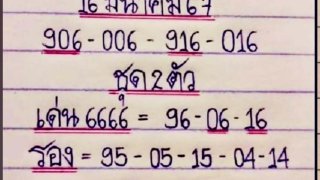 16 มีนาคม 67
906-006-916-016
ชุด 2 ตัว
เด่น 6666 = 96-06-16
รอง = 95-05-15-04-14